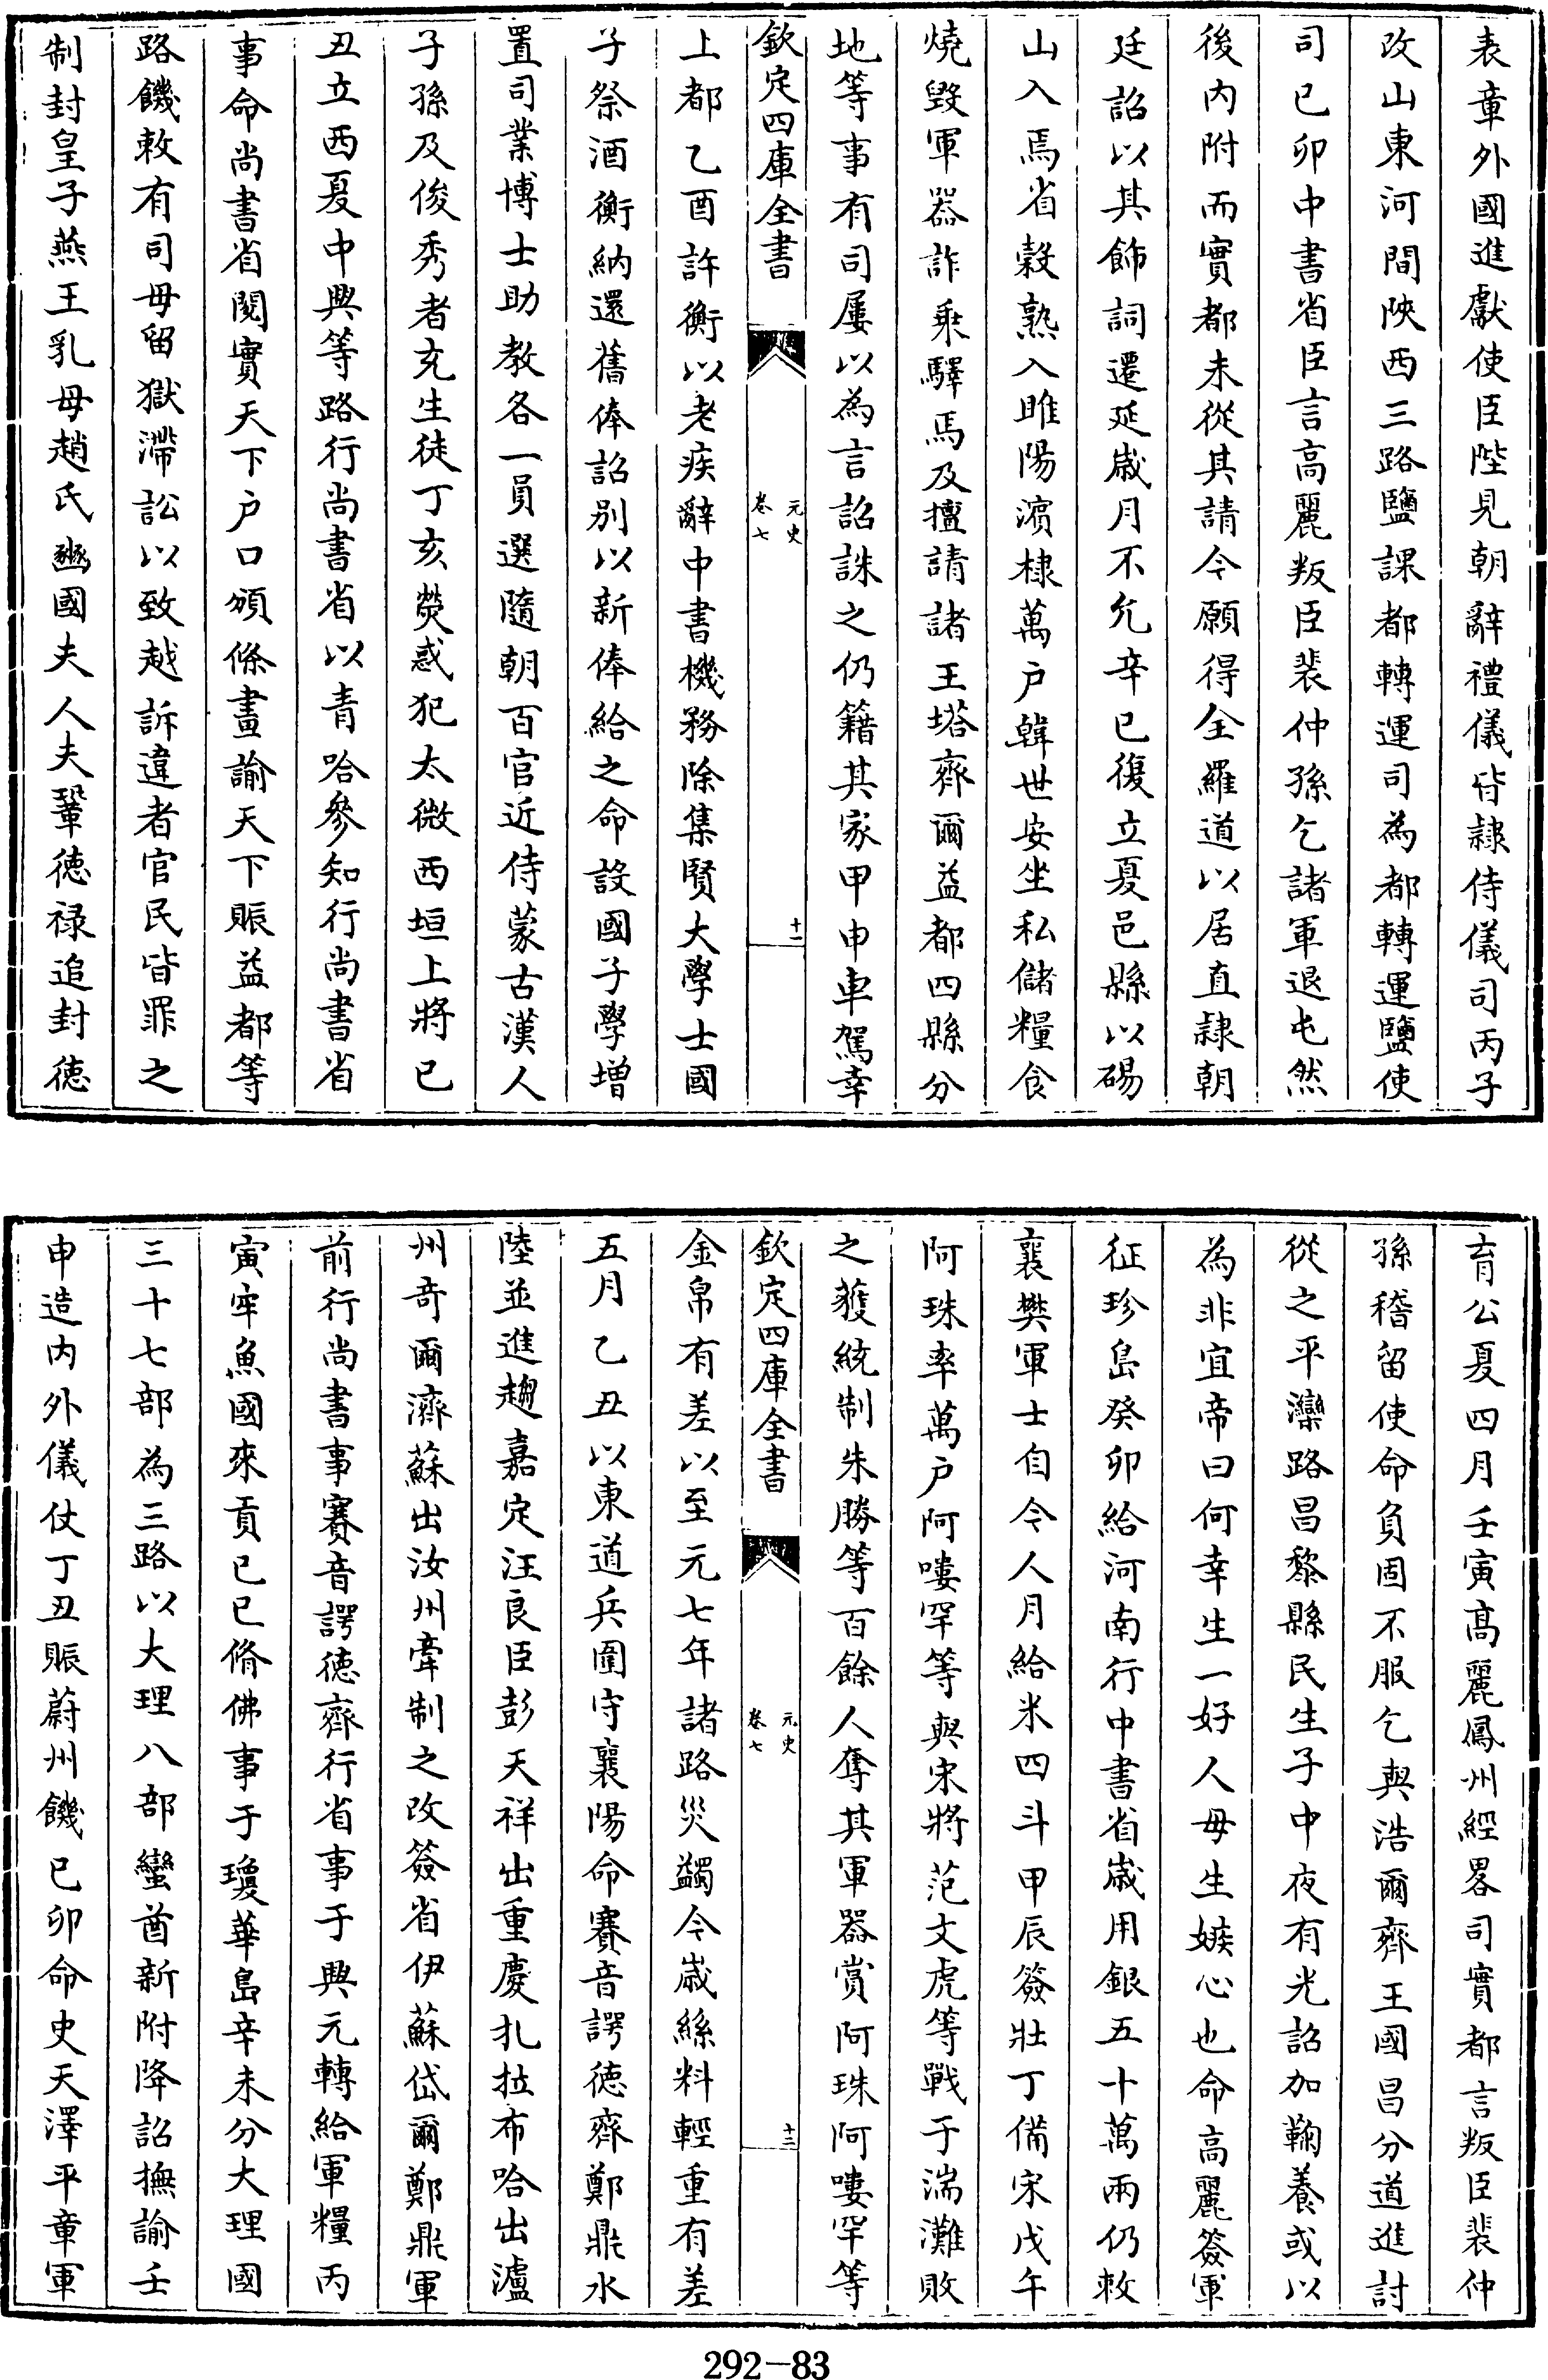 表章外國進獻使臣陛見朝辭禮儀皆隷侍儀司丙子
改山東河間陜西三路鹽課都轉運司為都轉運鹽使
司已卯中書省臣言高麗叛臣裴仲孫乞諸軍退屯然
後內附而實都未從其請今願得全羅道以居直隷朝
廷詔以其飾詞遷延歲月不允辛已復立夏邑縣以碭
山入焉省穀熟入睢陽濱棣萬户韓世安坐私儲糧食
燒毀軍器詐乘驛馬及擅請諸王塔齊爾益都四縣分
地等事有司屢以為言詔誅之仍籍其家甲申車駕幸
欽定四庫全書 元史 卷七 十一
上都乙酉許衡以老疾辭中書機務除集賢大學士國
子祭酒衡納還舊俸詔别以新俸給之命設國子學增
置司業博士助教各一員選隨朝百官近侍蒙古漢人
子孫及俊秀者充生徒丁亥熒惑犯太微西垣上將已
丑立西夏中興等路行尚書省以青哈參知行尚書省
事命尚書省閲實天下户口頒條畫諭天下賑益都等
路饑敕有司毋留獄滯訟以致越訴違者官民皆罪之
制封皇子燕王乳母趙氏豳國夫人夫鞏德禄追封德
育公夏四月壬寅髙麗鳳州經畧司實都言叛臣裴仲
孫稽留使命負固不服乞與浩爾齊王國昌分道進討
從之平灤路昌黎縣民生子中夜有光詔加鞠養或以
為非宜帝曰何幸生一好人毋生嫉心也命高麗簽軍
征珍島癸卯給河南行中書省歲用銀五十萬兩仍敕
襄樊軍士自今人月給米四斗甲辰簽壯丁備宋戊午
阿珠率萬户阿嘍罕等與宋將范文虎等戰于湍灘敗
之獲統制朱勝等百餘人奪其軍器賞阿珠阿嘍罕等
欽定四庫全書 元史 卷七 十二
金帛有差以至元七年諸路災蠲今歲絲料輕重有差
五月乙丑以東道兵圍守襄陽命賽音諤德齊鄭鼎水
陸並進趨嘉定汪良臣彭天祥出重慶扎拉布哈出瀘
州竒爾濟蘇出汝州牽制之改簽省伊蘇岱爾鄭鼎軍
前行尚書事賽音諤德齊行省事于興元轉給軍糧丙
寅牢魚國來貢已已脩佛事于瓊華島辛未分大理國
三十七部為三路以大理八部蠻酋新附降詔撫諭壬
申造内外儀仗丁丑賑蔚州饑已卯命史天澤平章軍
292-83